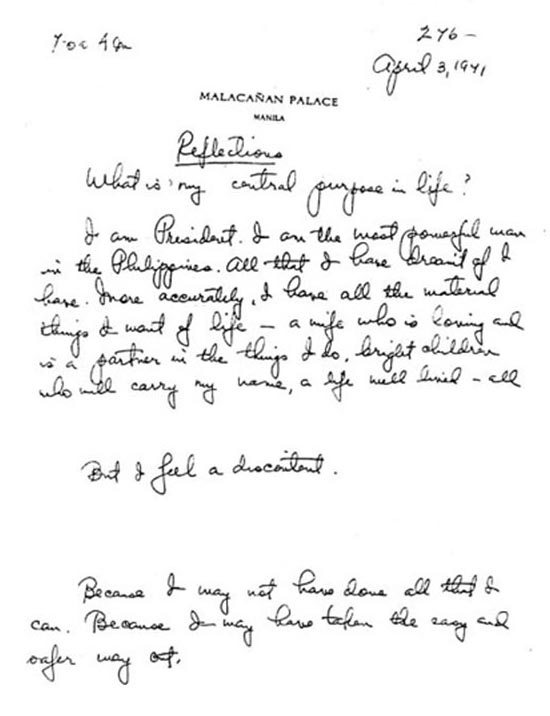 276-
April 3, 1971
MALACAÑAN PALACE
MANILA
Reflections
What is my central purpose in life?
I am President. I am the most powerful man
in the Philippines. All that I have dreamt of I
have. More accurately, I have all the material
things I want of life – a wife who is loving and
is a partner in the things I do, bright children
who will carry my name, a life well lived – all
But I feel a discontent.
Because I may not have done all that I
can. Because I may have taken the easy and
safer way out.